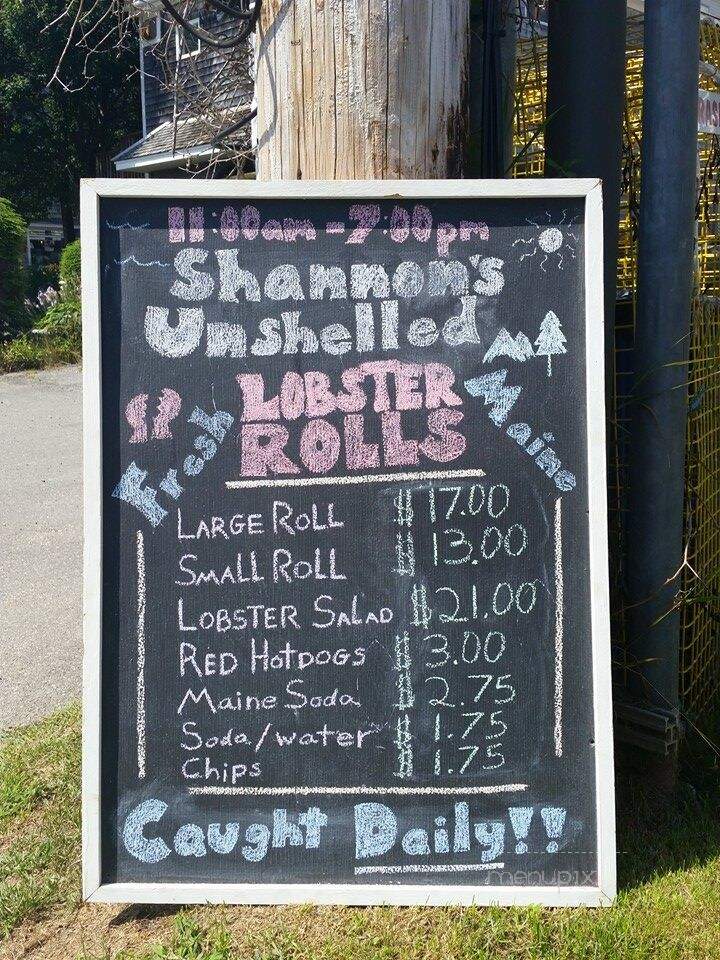 11:00am - 7:00pm
Shannon's
Unshelled
LOBSTER
ROLLS
Fresh
Maine
LARGE ROLL $17.00
SMALL ROLL $13.00
LOBSTER SALAD $21.00
RED HOTDOGS $3.00
Maine Soda $2.75
Soda/water $1.75
Chips $1.75
Caught Daily!!
menupix